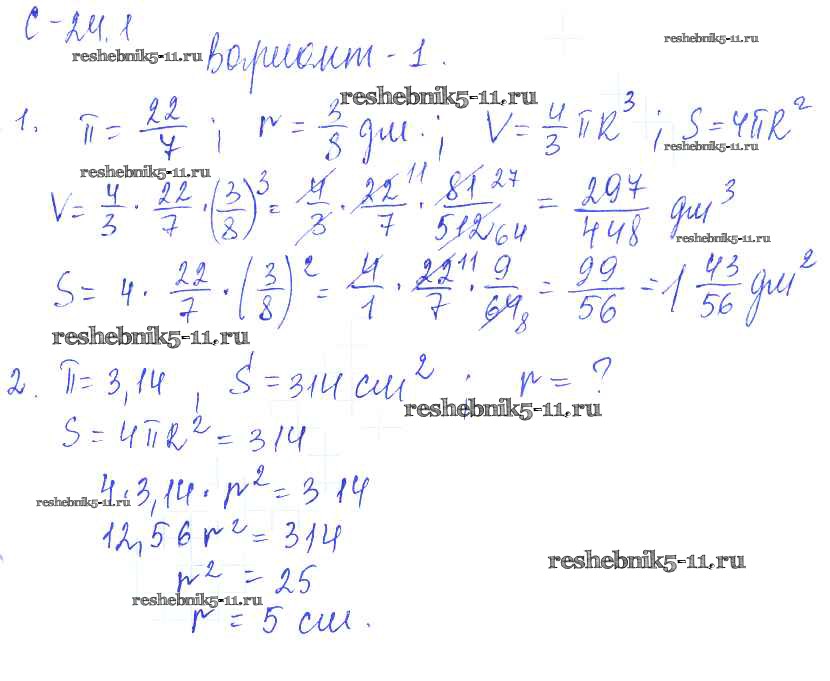 С-24.1
reshebnik5-11.ru
reshebnik5-11.ru
Вариант-1.
reshebnik5-11.ru
1. π = 22/7 ; r = 3/8 дм. ; V = 4/3 πR³ ; S = 4πR²
reshebnik5-11.ru
reshebnik5-11.ru
V = 4/3 · 22/7 · (3/8)³ = 4/3 · 22 11/7 · 81 27/512 64 = 297/448 дм³
reshebnik5-11.ru
S = 4 · 22/7 · (3/8)² = 4/1 · 22 11/7 · 9/64 8 = 99/56 = 1 43/56 дм²
reshebnik5-11.ru
2. π = 3,14 , S = 314 см² ; r = ?
reshebnik5-11.ru
S = 4πR² = 314
4·3,14·r² = 314
reshebnik5-11.ru
12,56 r² = 314
reshebnik5-11.ru
r² = 25
reshebnik5-11.ru
r = 5 см.